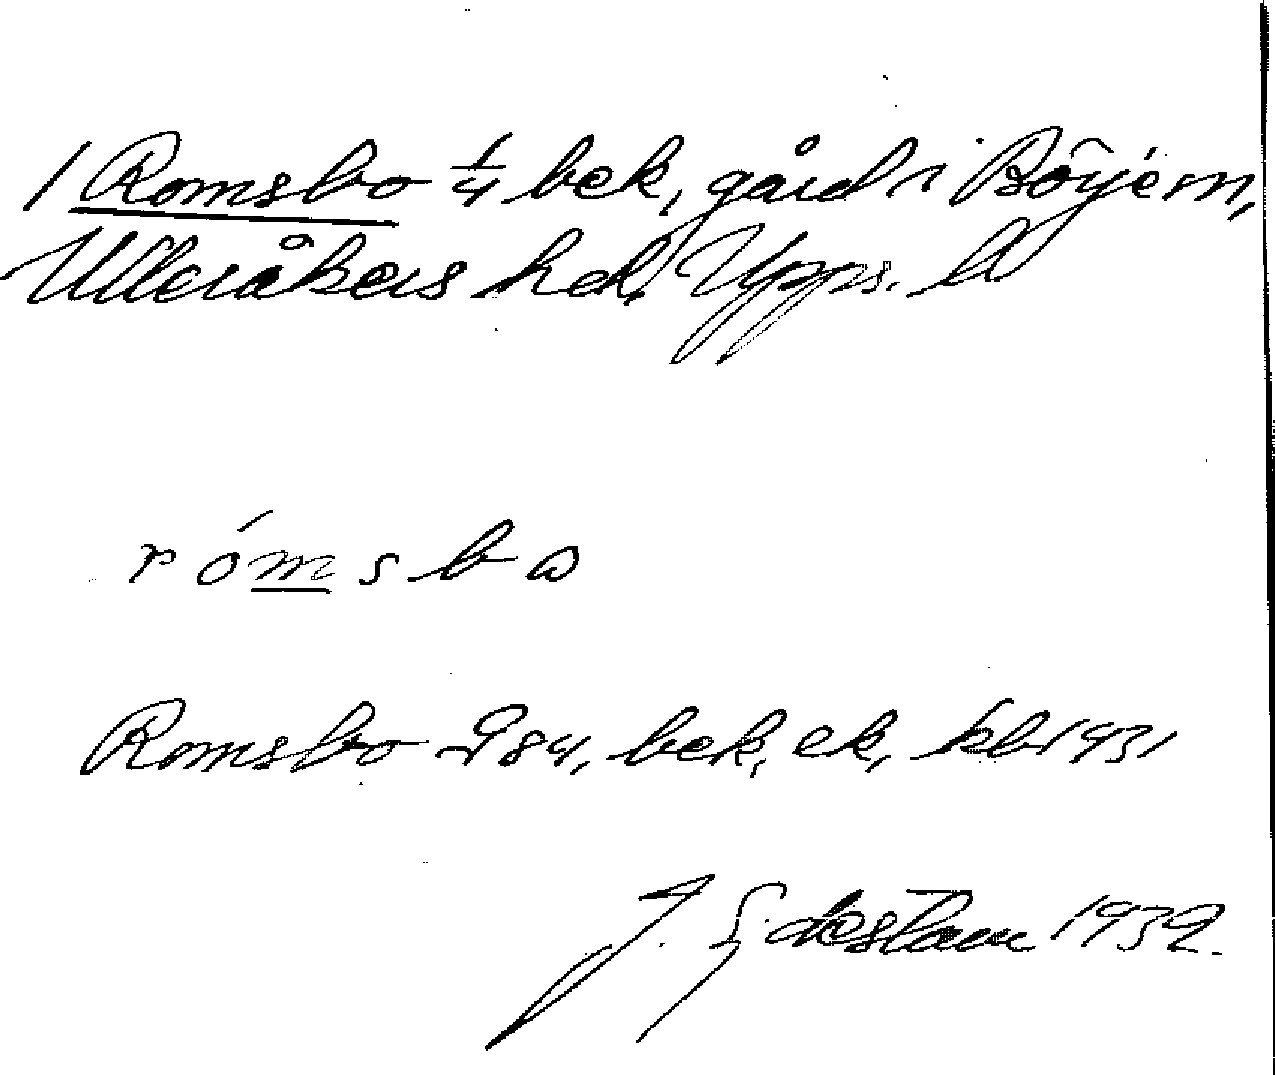 1 Romsbo 1/4 bek, gård i Börje sn,
Ulleråkers hd. Upps. l.
rómsbo
Romsbo 984, bek, ek, kb 1931
J. 1932.